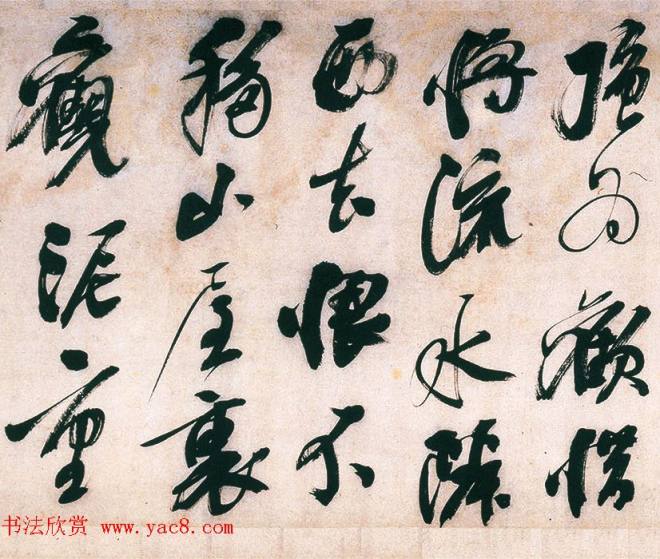 強為歡惜
將流水隣
西去恨不
移山屋裏
觀泥重
书法欣赏 www.yac8.com